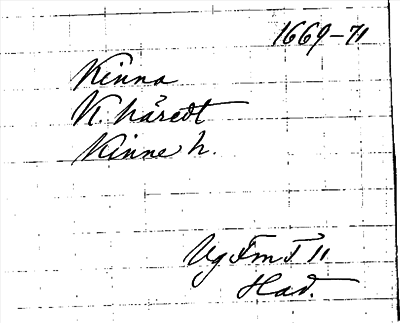 1669-71
Kinna
K. häredt
Kinne h.
Vg Fm F 11
Had.